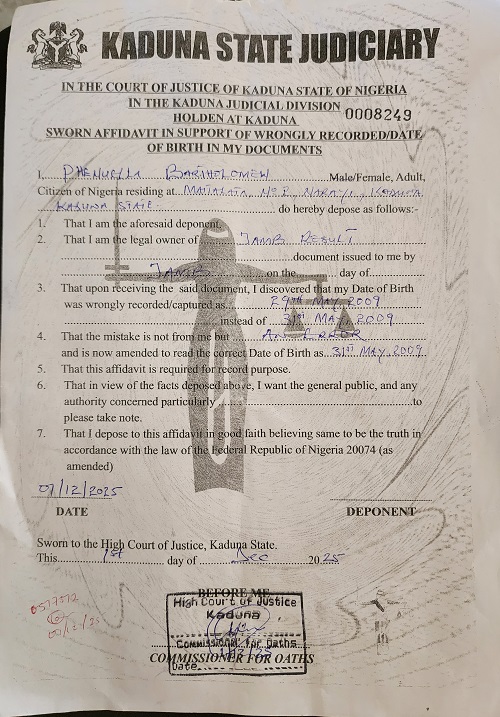 KADUNA STATE JUDICIARY
IN THE COURT OF JUSTICE OF KADUNA STATE OF NIGERIA
IN THE KADUNA JUDICIAL DIVISION
HOLDEN AT KADUNA 0008249
SWORN AFFIDAVIT IN SUPPORT OF WRONGLY RECORDED/DATE
OF BIRTH IN MY DOCUMENTS
I, BARTHOLOMEW Male/Female, Adult,
Citizen of Nigeria residing at NO. 1, NARAYI, KADUNA
KADUNA STATE. do hereby depose as follows:-
1. That I am the aforesaid deponent.
2. That I am the legal owner of JAMB RESULT
document issued to me by
JAMB on the day of
3. That upon receiving the said document, I discovered that my Date of Birth
was wrongly recorded/captured as 29TH MAY 2009
instead of 31ST MAY 2009
4. That the mistake is not from me but AN ERROR
and is now amended to read the correct Date of Birth as 31ST MAY, 2009
5. That this affidavit is required for record purpose.
6. That in view of the facts deposed above, I want the general public, and any
authority concerned particularly to
please take note.
7. That I depose to this affidavit in good faith believing same to be the truth in
accordance with the law of the Federal Republic of Nigeria 20074 (as
amended)
01/12/2025
DATE DEPONENT
Sworn to the High Court of Justice, Kaduna State.
This 1st day of Dec 2025
BEFORE ME
High Court of Justice
Kaduna
Commissioner for Oaths
COMMISSIONER FOR OATHS
Date
0577572
01/12/25